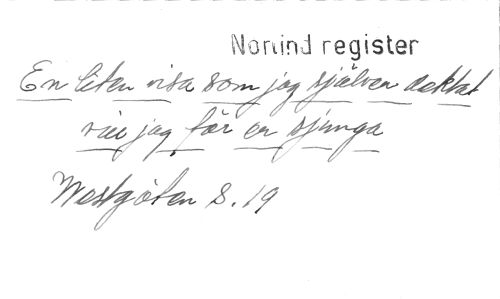 Norlind register
En liten visa som jag själven dektat
vill jag för en sjunga
Westgöten S. 19